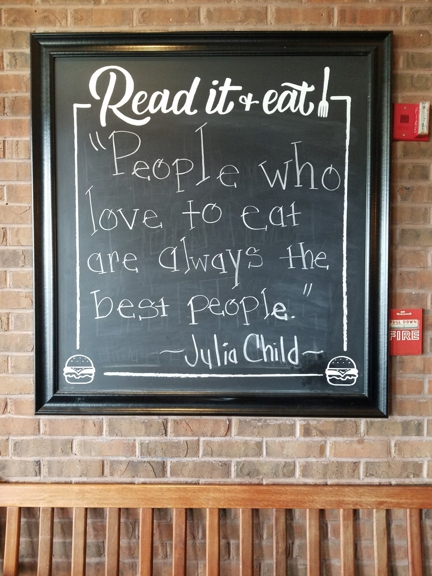 Read it + eat!
"People who
love to eat
are always the
best people."
~Julia Child~
PULL DOWN
FIRE